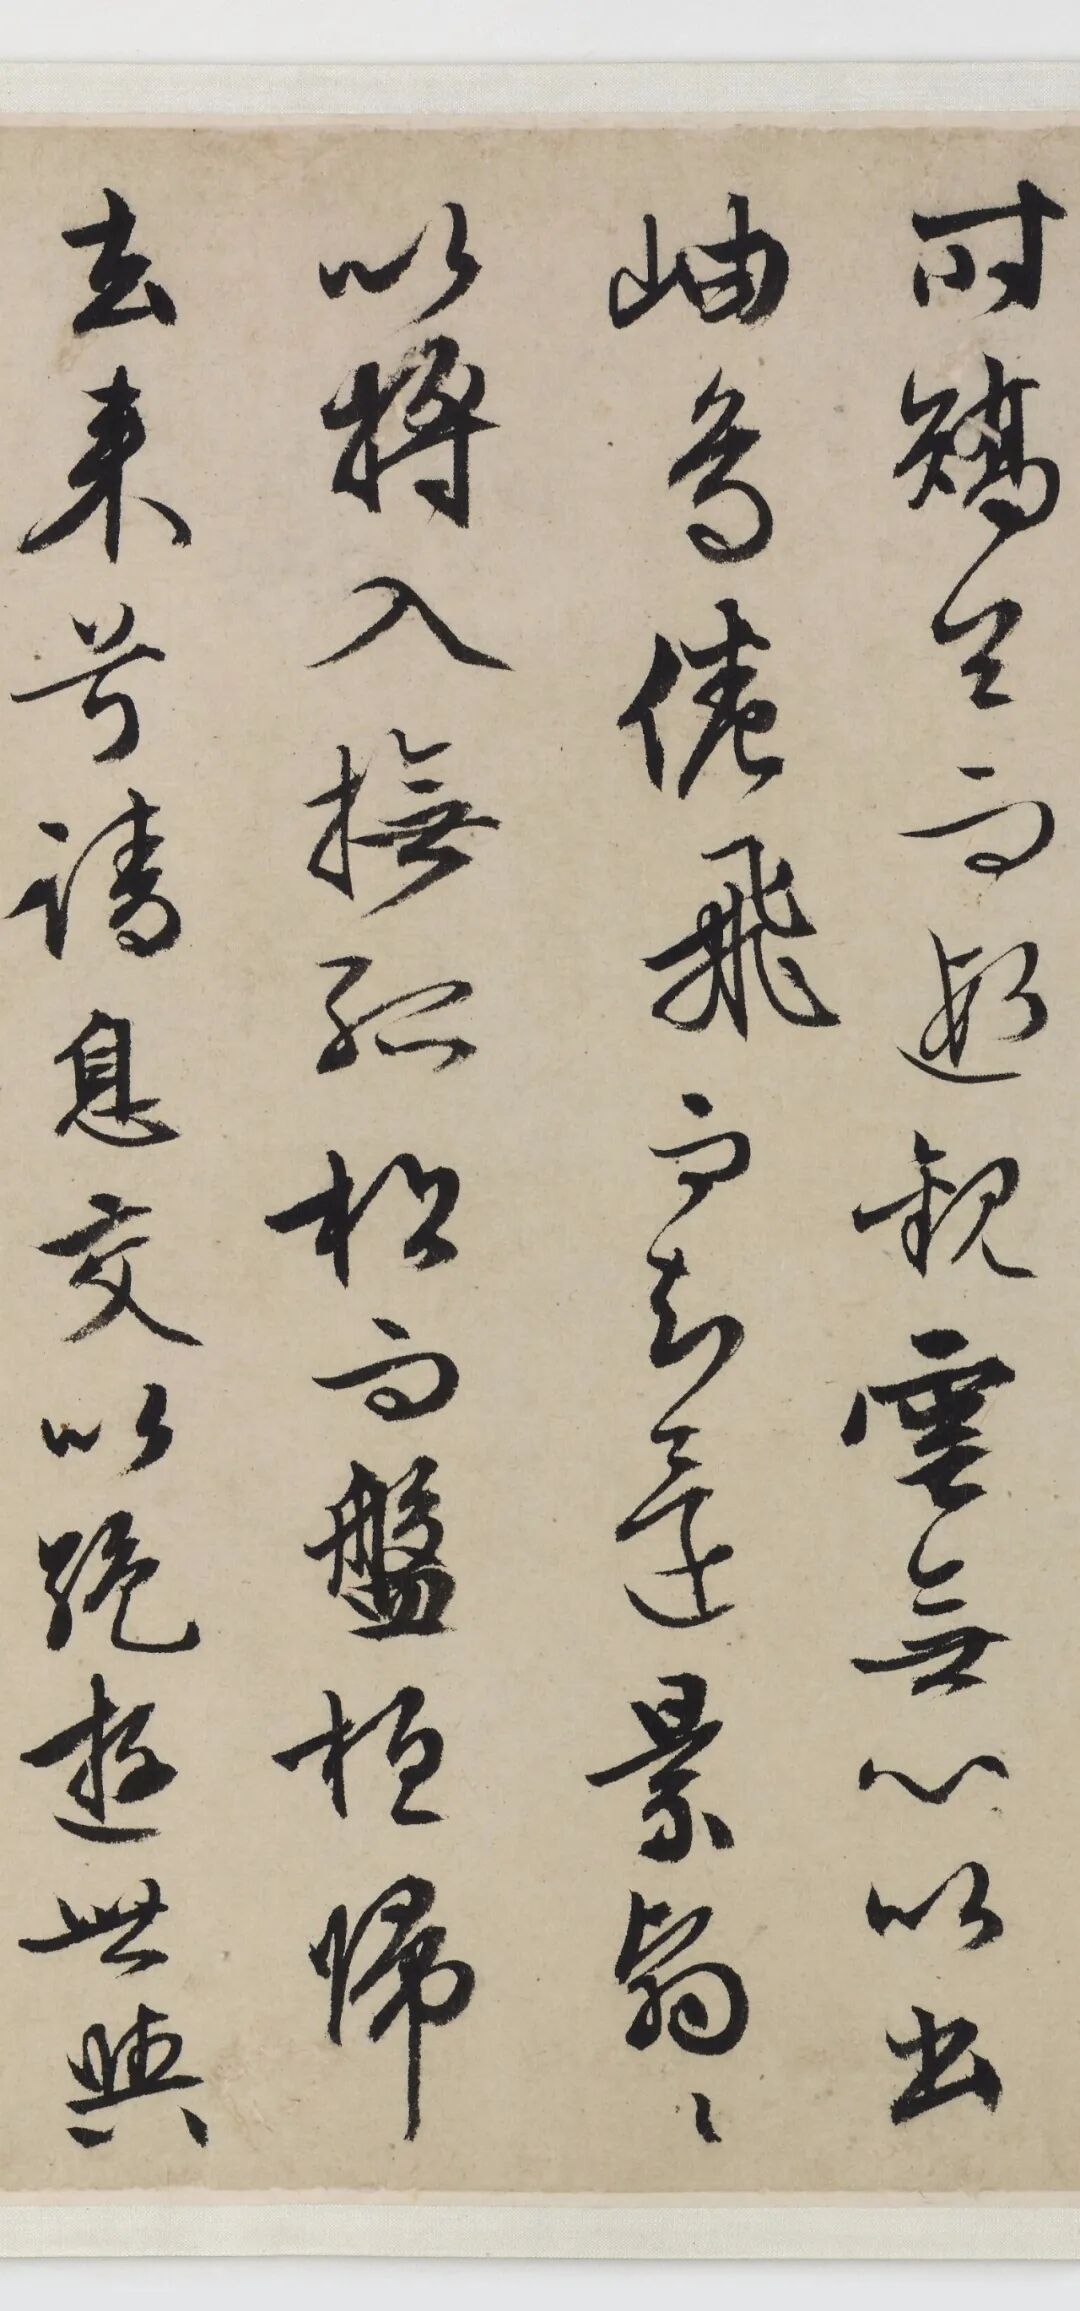 時矯首而遐觀雲無心以出
岫鳥倦飛而知還景翳〻
以將入撫孤松而盤桓歸
去來兮請息交以絕遊世與